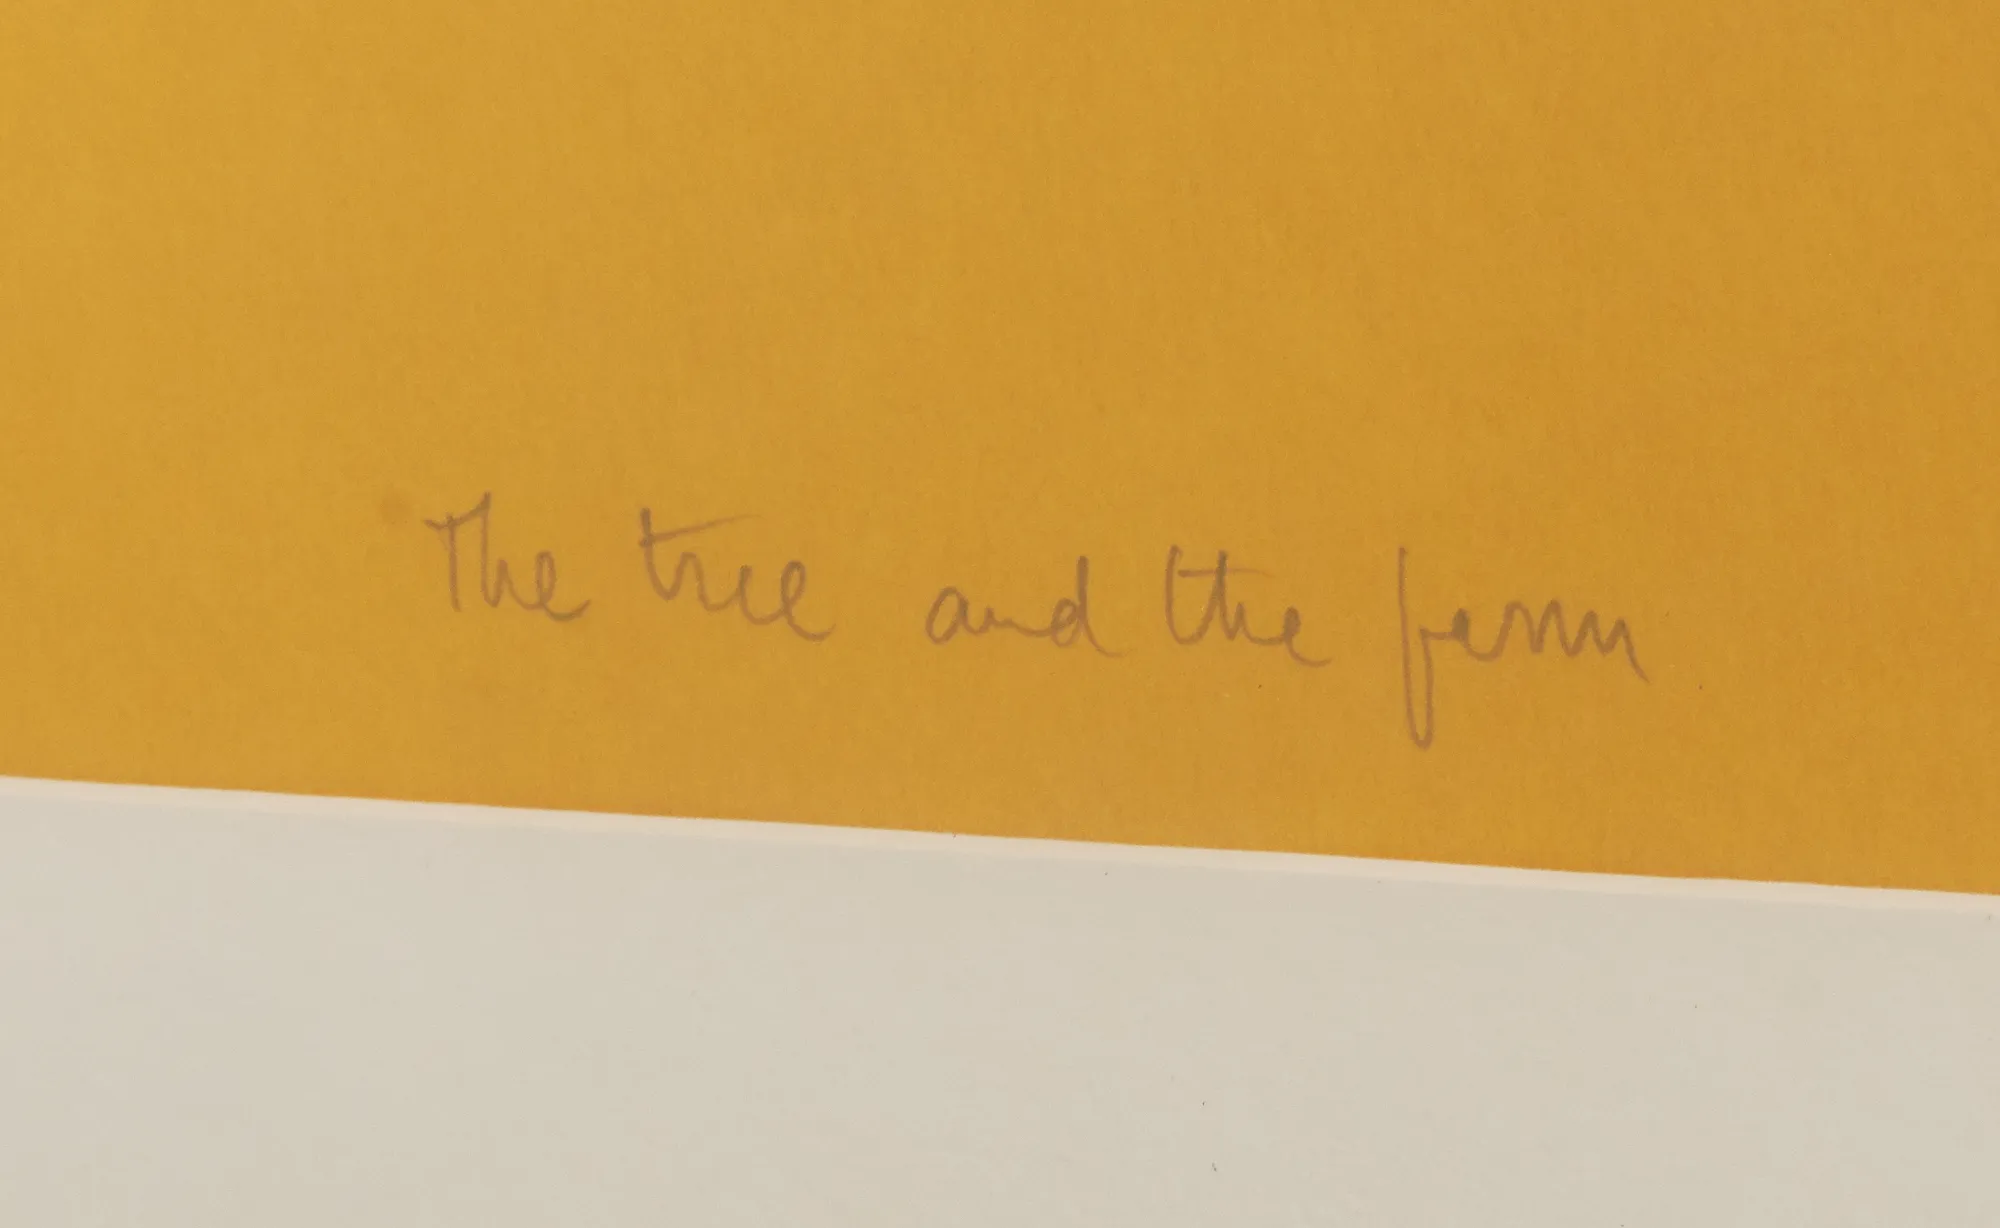 The tree and the farm